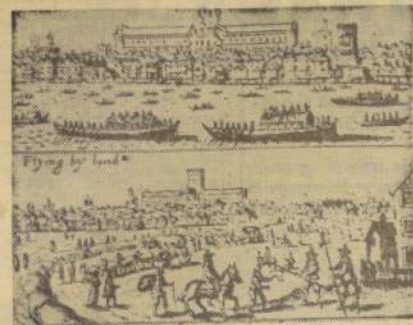 Flying by land